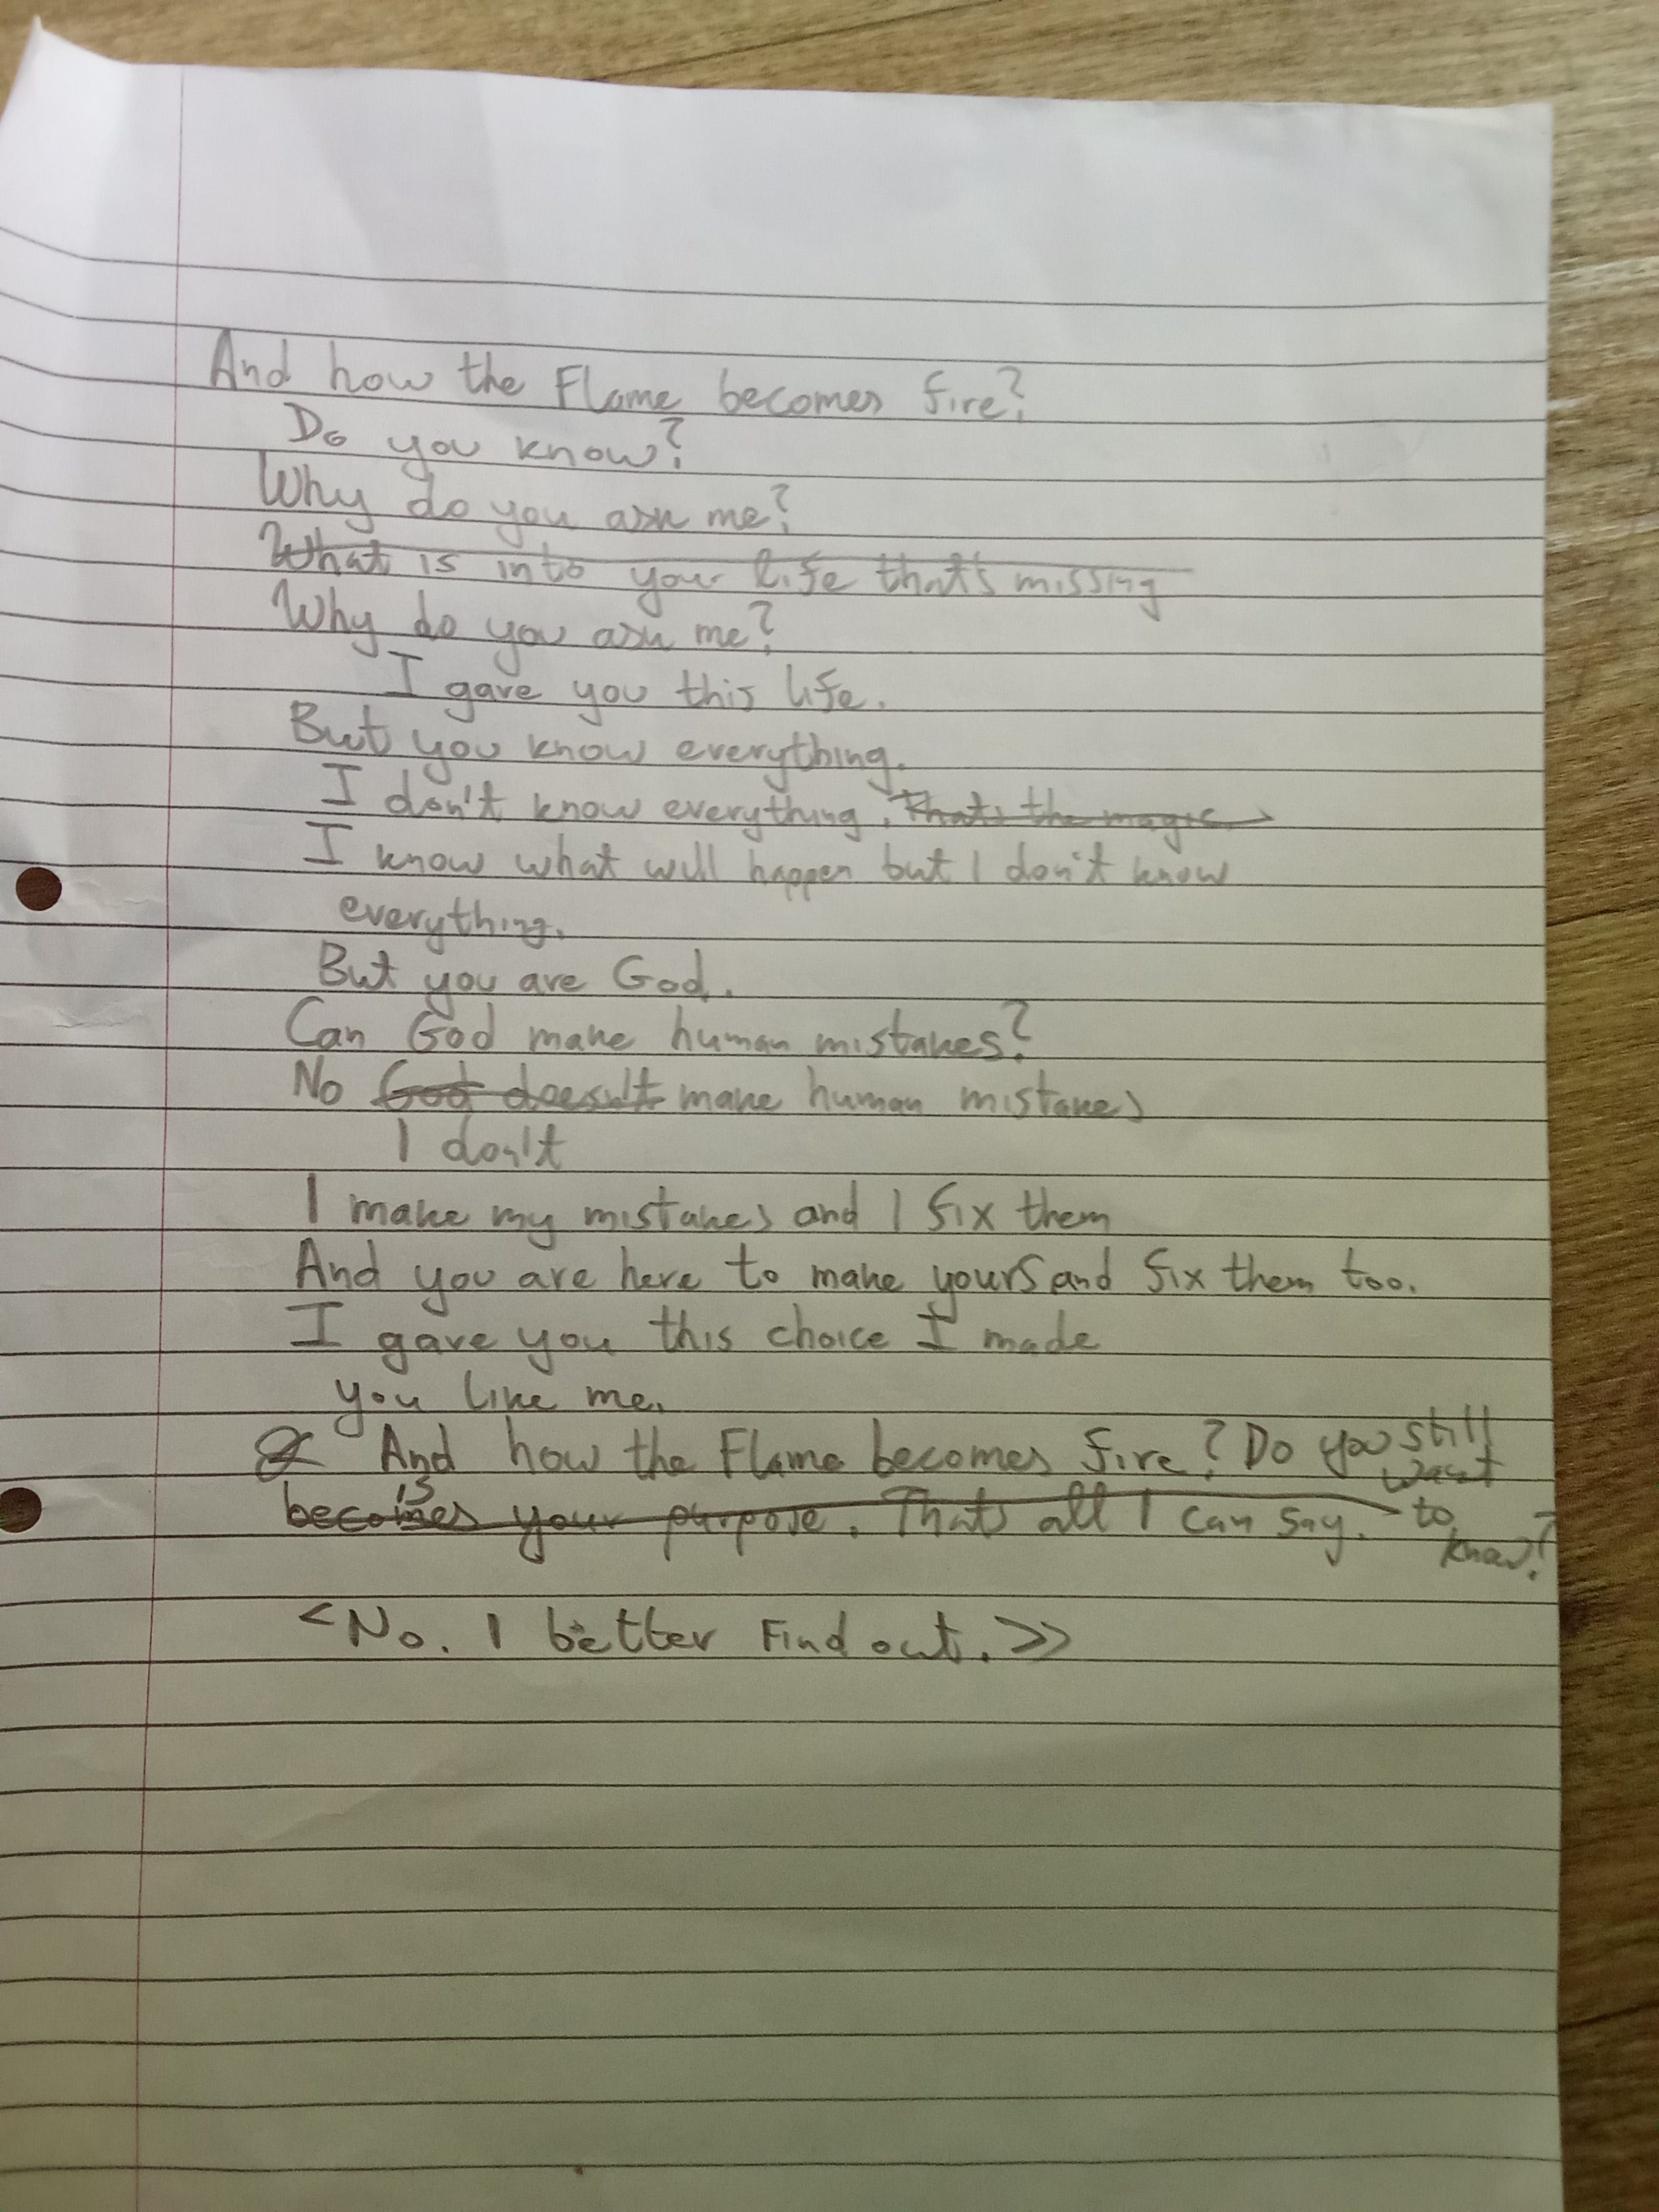 And how the Flame becomes fire?
Do you know?
Why do you ask me?
What is into your life that's missing
Why do you ask me?
I gave you this life.
But you know everything.
I don't know everything. That's the magic
I know what will happen but I don't know
everything.
But you are God.
Can God make human mistakes?
No God doesn't make human mistakes
I don't
I make my mistakes and I fix them
And you are here to make yours and fix them too.
I gave you this choice I made
you like me.
And how the Flame becomes fire? Do you still
want
is
becomes your purpose. That's all I can say. to
know?
<No. I better Find out.>>